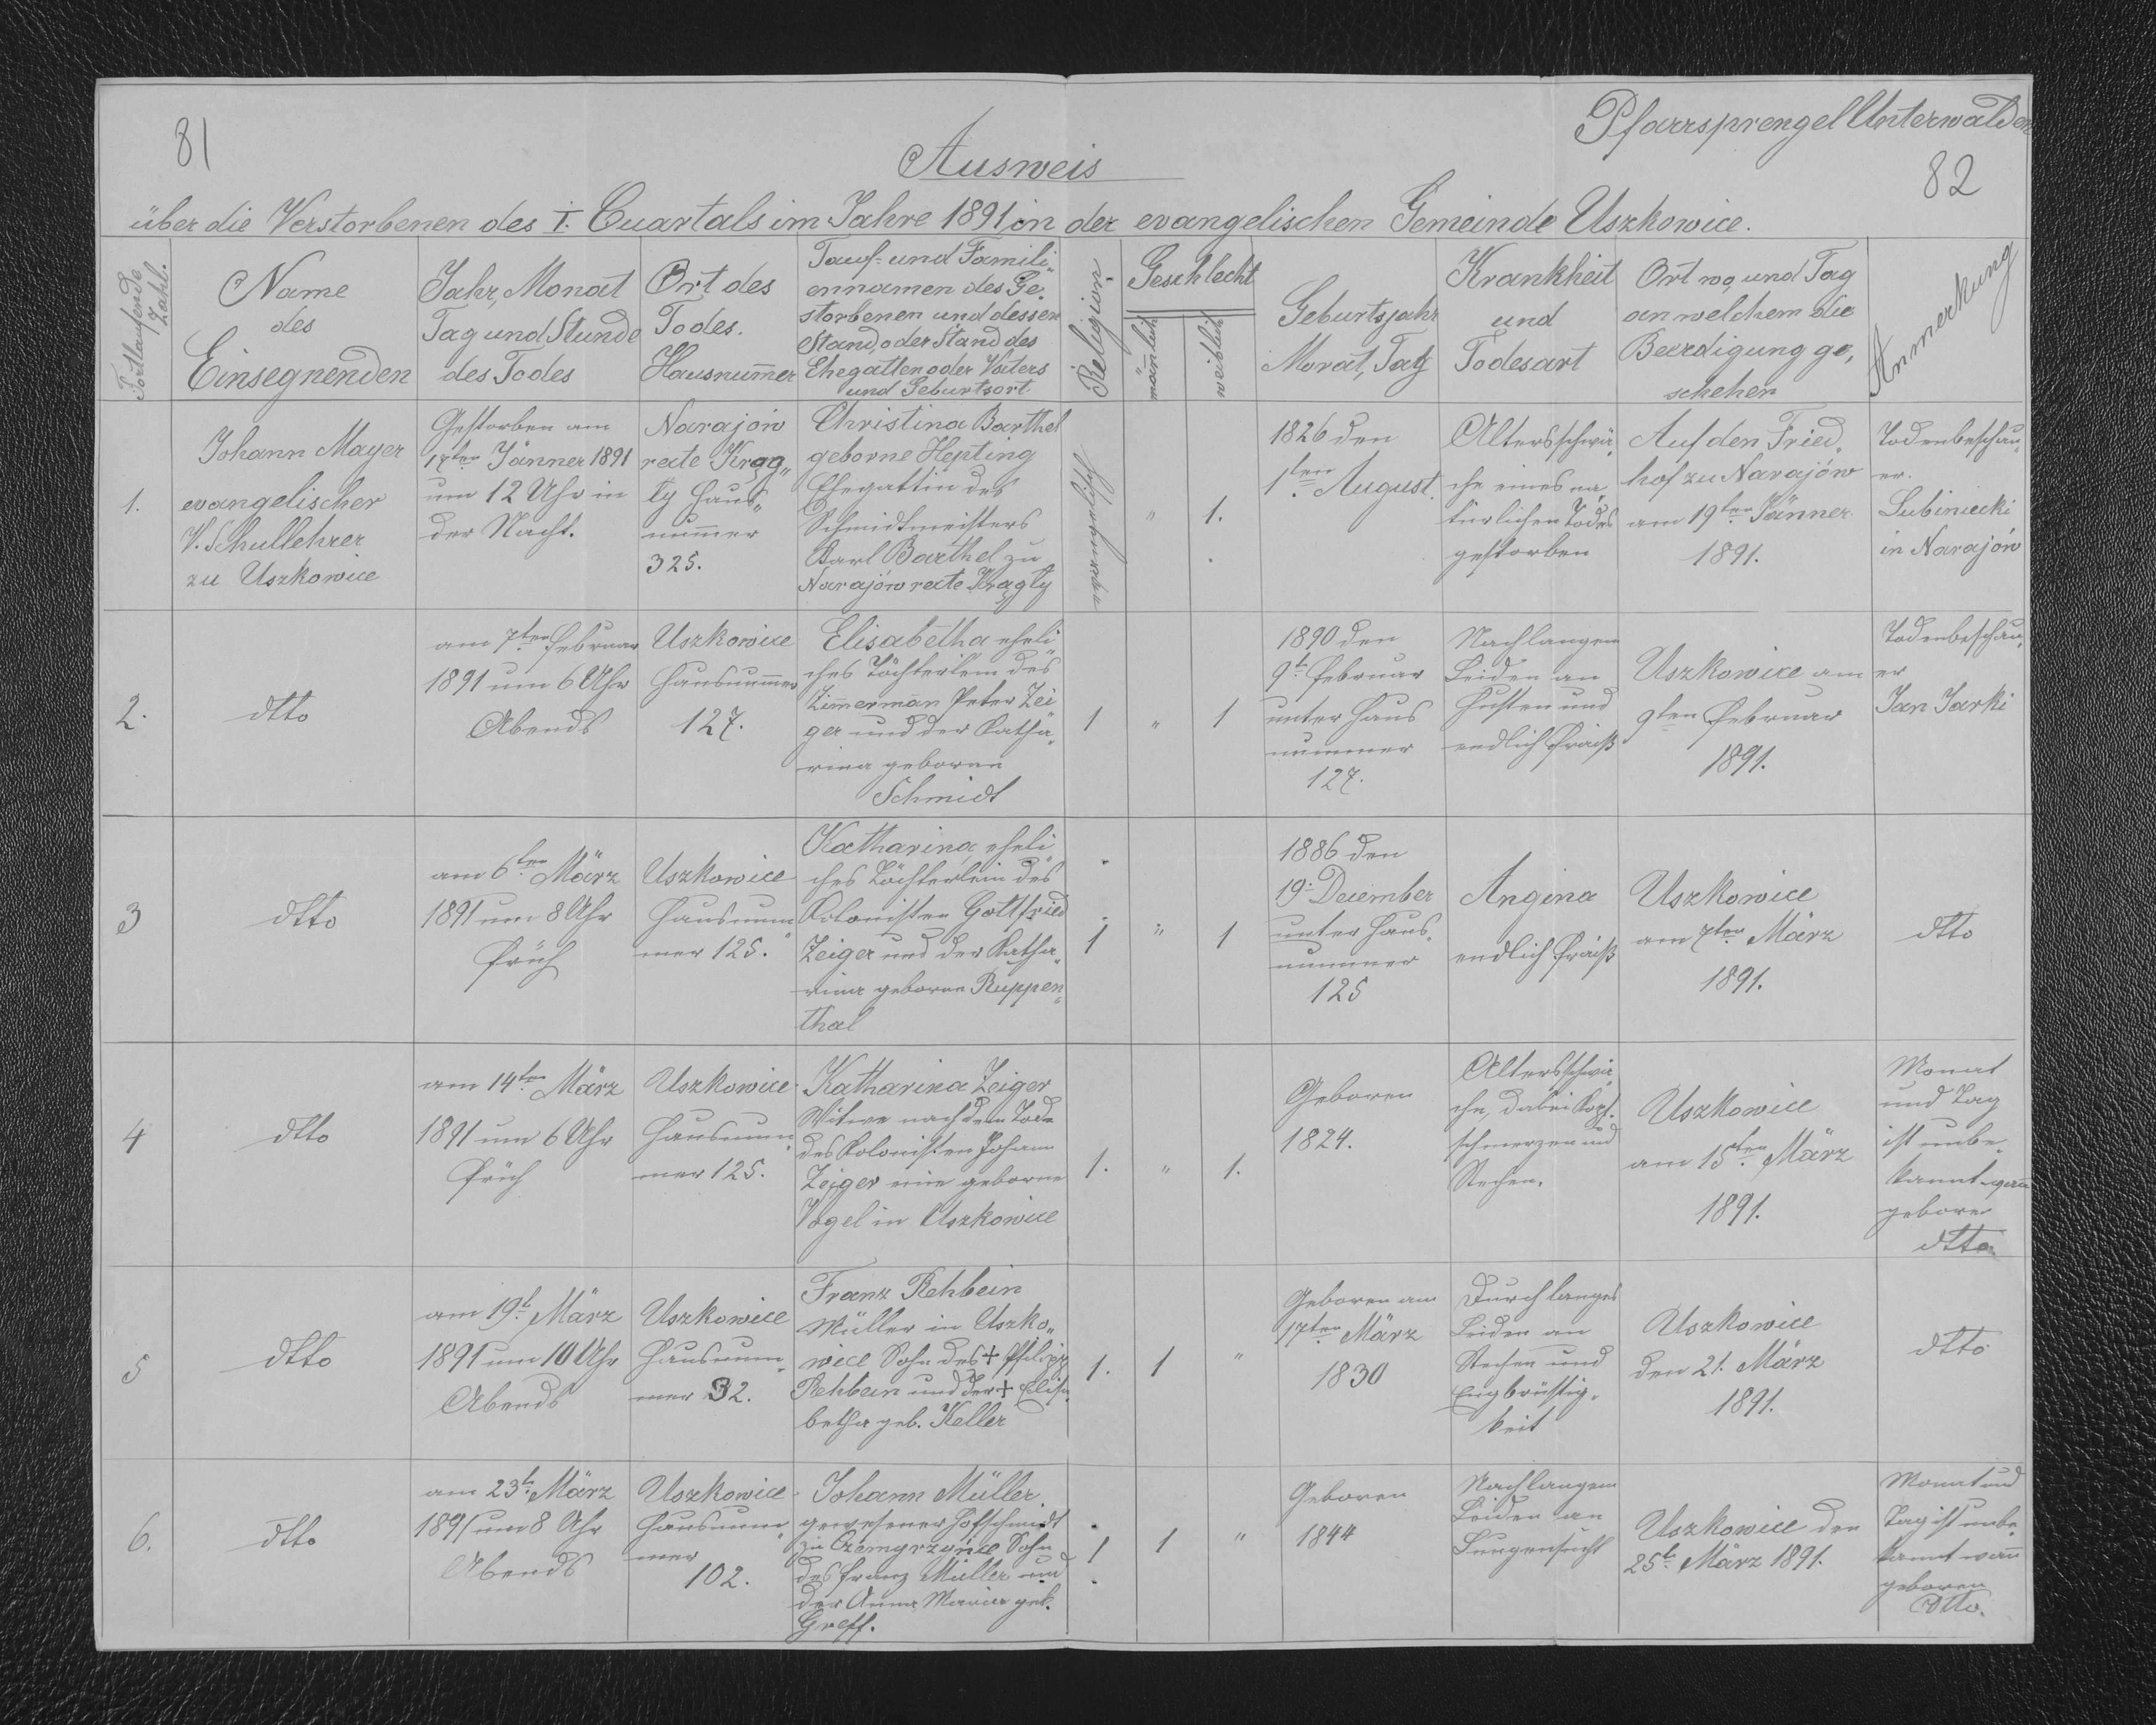 81
Pfarrsprengel Unterwalden
82
Ausweis
über die Verstorbenen des I. Quartals im Jahre 1891 in der evangelischen Gemeinde Uszkowice.
Fortlaufende
Zahl.
Name
des
Einsegnenden
Jahr, Monat
Tag und Stunde
des Todes
Ort des
Todes.
Hausnum̄er
Tauf- und Famili„
ennamen des Ge„
storbenen und dessen
Stand, oder Stand des
Ehegatten oder Vaters
und Geburtsort
Religion
Geschlecht
mänlich
weiblich
Geburtsjahr
Monat, Tag
Krankheit
und
Todesart
Ort wo, und Tag
an welchem die
Beerdigung ge„
schehen
Anmerkung
1.
Johann Mayer
evangelischer
V. Schullehrer
zu Uszkowice
Gestorben am
17ten Jänner 1891
um 12 Uhr in
der Nacht.
Narajów
recte Krąg„
ły Haus„
num̄er
325.
Christina Barthel
geborne Hepting
Ehegattin des
Schmidtmeisters
Karl Barthel zu
Narajów recte Krągły
evangelisch
"
1.
1826 den
1ten August.
Altersschwä„
che eines na„
türlichen Todes
gestorben
Auf den Fried„
hof zu Narajów
am 19ten Jänner
1891.
Todenbeschau„
er.
Lubiniecki
in Narajów
2.
dtto
am 7ten Februar
1891 um 6 Uhr
Abends
Uszkowice
Hausnum̄er
127.
Elisabetha eheli„
ches Töchterlein des
Zim̄erman̄ Peter Zei
ger und der Katha„
rina geborne
Schmidt
1
"
1
1890 den
9t. Februar
unter Haus
nummer
127.
Nach langem
Leiden an
Husten und
endlich Fraiß
Uszkowice am
9ten Februar
1891.
Todenbeschau„
er
Jan Jarki
3
dtto
am 6ten März
1891 um 8 Uhr
früh
Uszkowice
Hausnum„
mer 125.
Katharina eheli
ches Töchterlein des
Kolonisten Gottfried
Zeiger und der Katha„
rina geborne Ruppen„
thal
1
"
1
1886 den
19. December
unter Haus„
nummer
125
Angina
endlich Fraiß
Uszkowice
am 7ten März
1891.
dtto
4
dtto
am 14ten März
1891 um 6 Uhr
früh
Uszkowice
Hausnum„
mer 125.
Katharina Zeiger
Witwe nach dem Tode
des Kolonisten Johann
Zeiger eine geborne
Vogel in Uszkowice
1.
"
1.
Geboren
1824.
Altersschwä„
che, dabei Kopf„
schmerzen und
Stechen.
Uszkowice
am 15ten März
1891.
Monat
und Tag
ist unbe„
kannt wan̄
geboren
dtto
5
dtto
am 19t. März
1891 um 10 Uhr
Abends
Uszkowice
Hausnum„
mer 32.
Franz Rehbein
Müller in Uszko„
wice Sohn des + Philipp
Rehbein und der + Elisa„
betha geb. Keller
1.
1
"
Geboren am
17ten März
1830
Durch langes
Leiden an
Stechen und
Engbrüstig„
keit
Uszkowice
den 21. März
1891.
dtto
6.
dtto
am 23t. März
1891 um 8 Uhr
Abends
Uszkowice
Hausnum„
mer
102.
Johann Müller
gewesener Hofschmidt
zu Czemyrzynce Sohn
des Franz Müller und
der Anna Maria geb.
Greff.
1
1
"
Geboren
1844
Nach langem
Leiden an
Lungensucht
Uszkowice den
25t. März 1891.
Monat und
Tag ist unbe„
kannt wan̄
geboren
dtto.